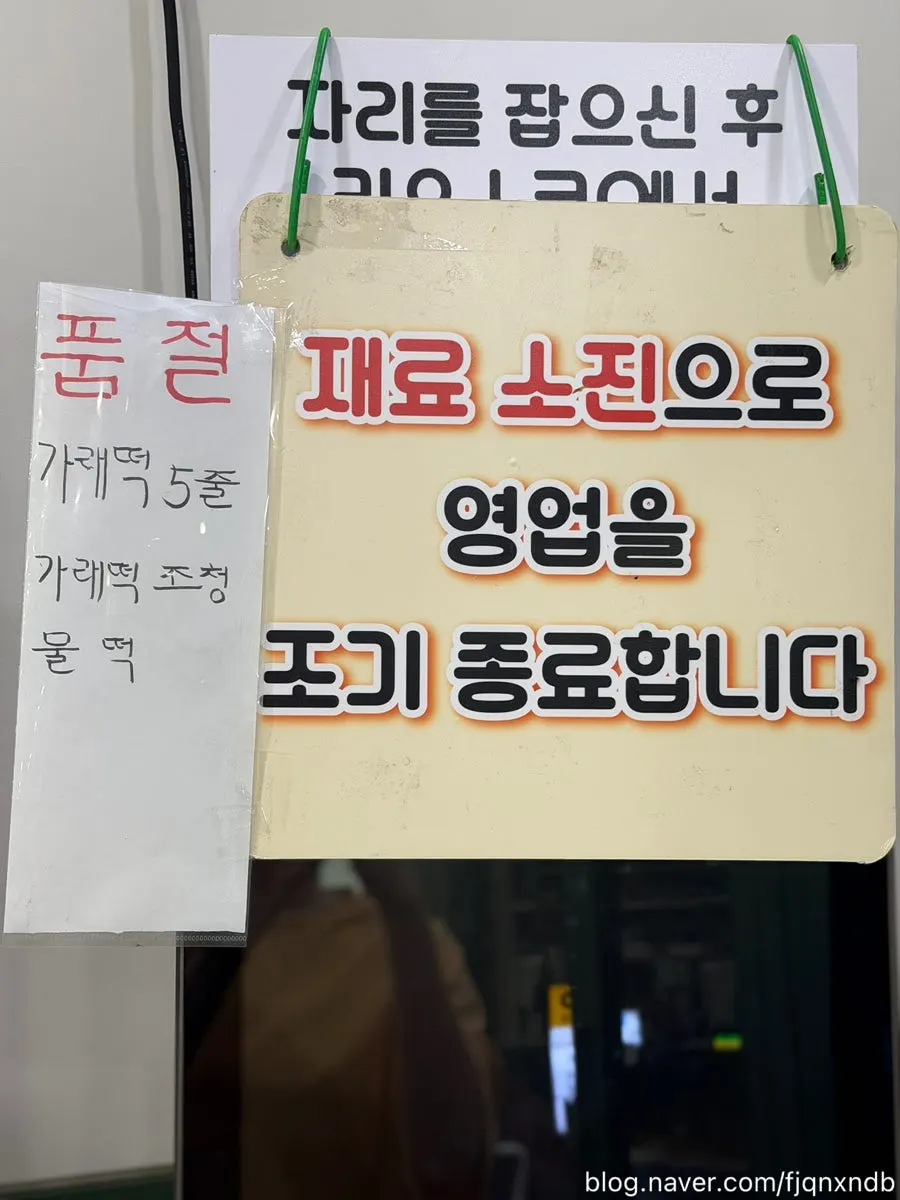 자리를 잡으신 후
키오스크에서
재료 소진으로
영업을
조기 종료합니다
품절
가래떡 5줄
가래떡 조청
물떡
blog.naver.com/fjqnxndb